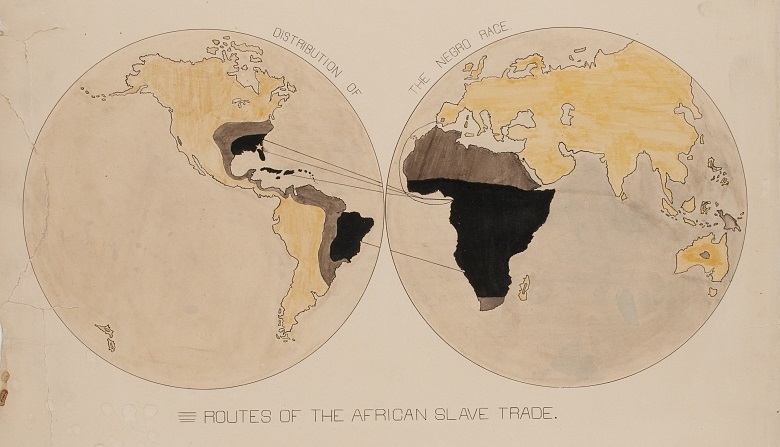 DISTRIBUTION OF
THE NEGRO RACE
ROUTES OF THE AFRICAN SLAVE TRADE.